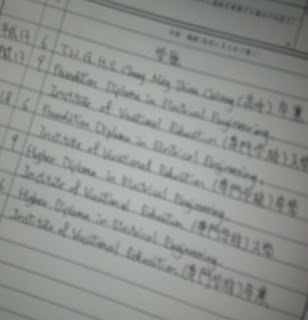 学歴
平成17 6 T.W.G.H.S. Chang Ming Thien College (高中) 卒業
平成17 9 Foundation Diploma in Electrical Engineering,
Institute of Vocational Education (専門学校) 入学
18 6 Foundation Diploma in Electrical Engineering,
Institute of Vocational Education (専門学校) 卒業
9 Higher Diploma in Electrical Engineering,
Institute of Vocational Education (専門学校) 入学
6 Higher Diploma in Electrical Engineering,
Institute of Vocational Education (専門学校) 卒業